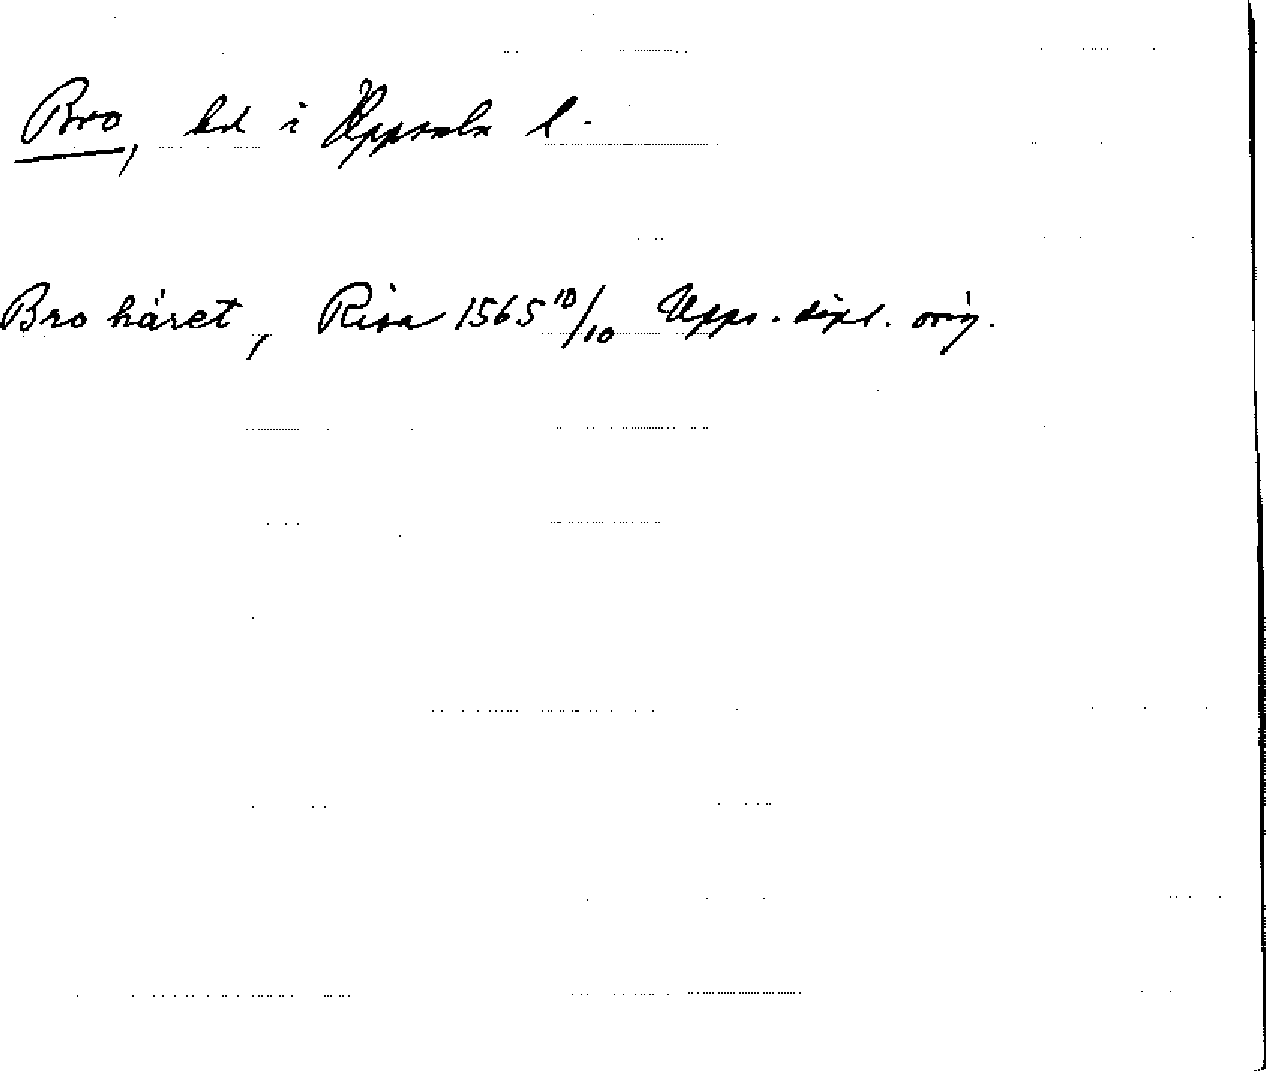 Bro, hd i Uppsala l.
Bro häret, Risa 1565 10/10 Upps. dipl. orig.